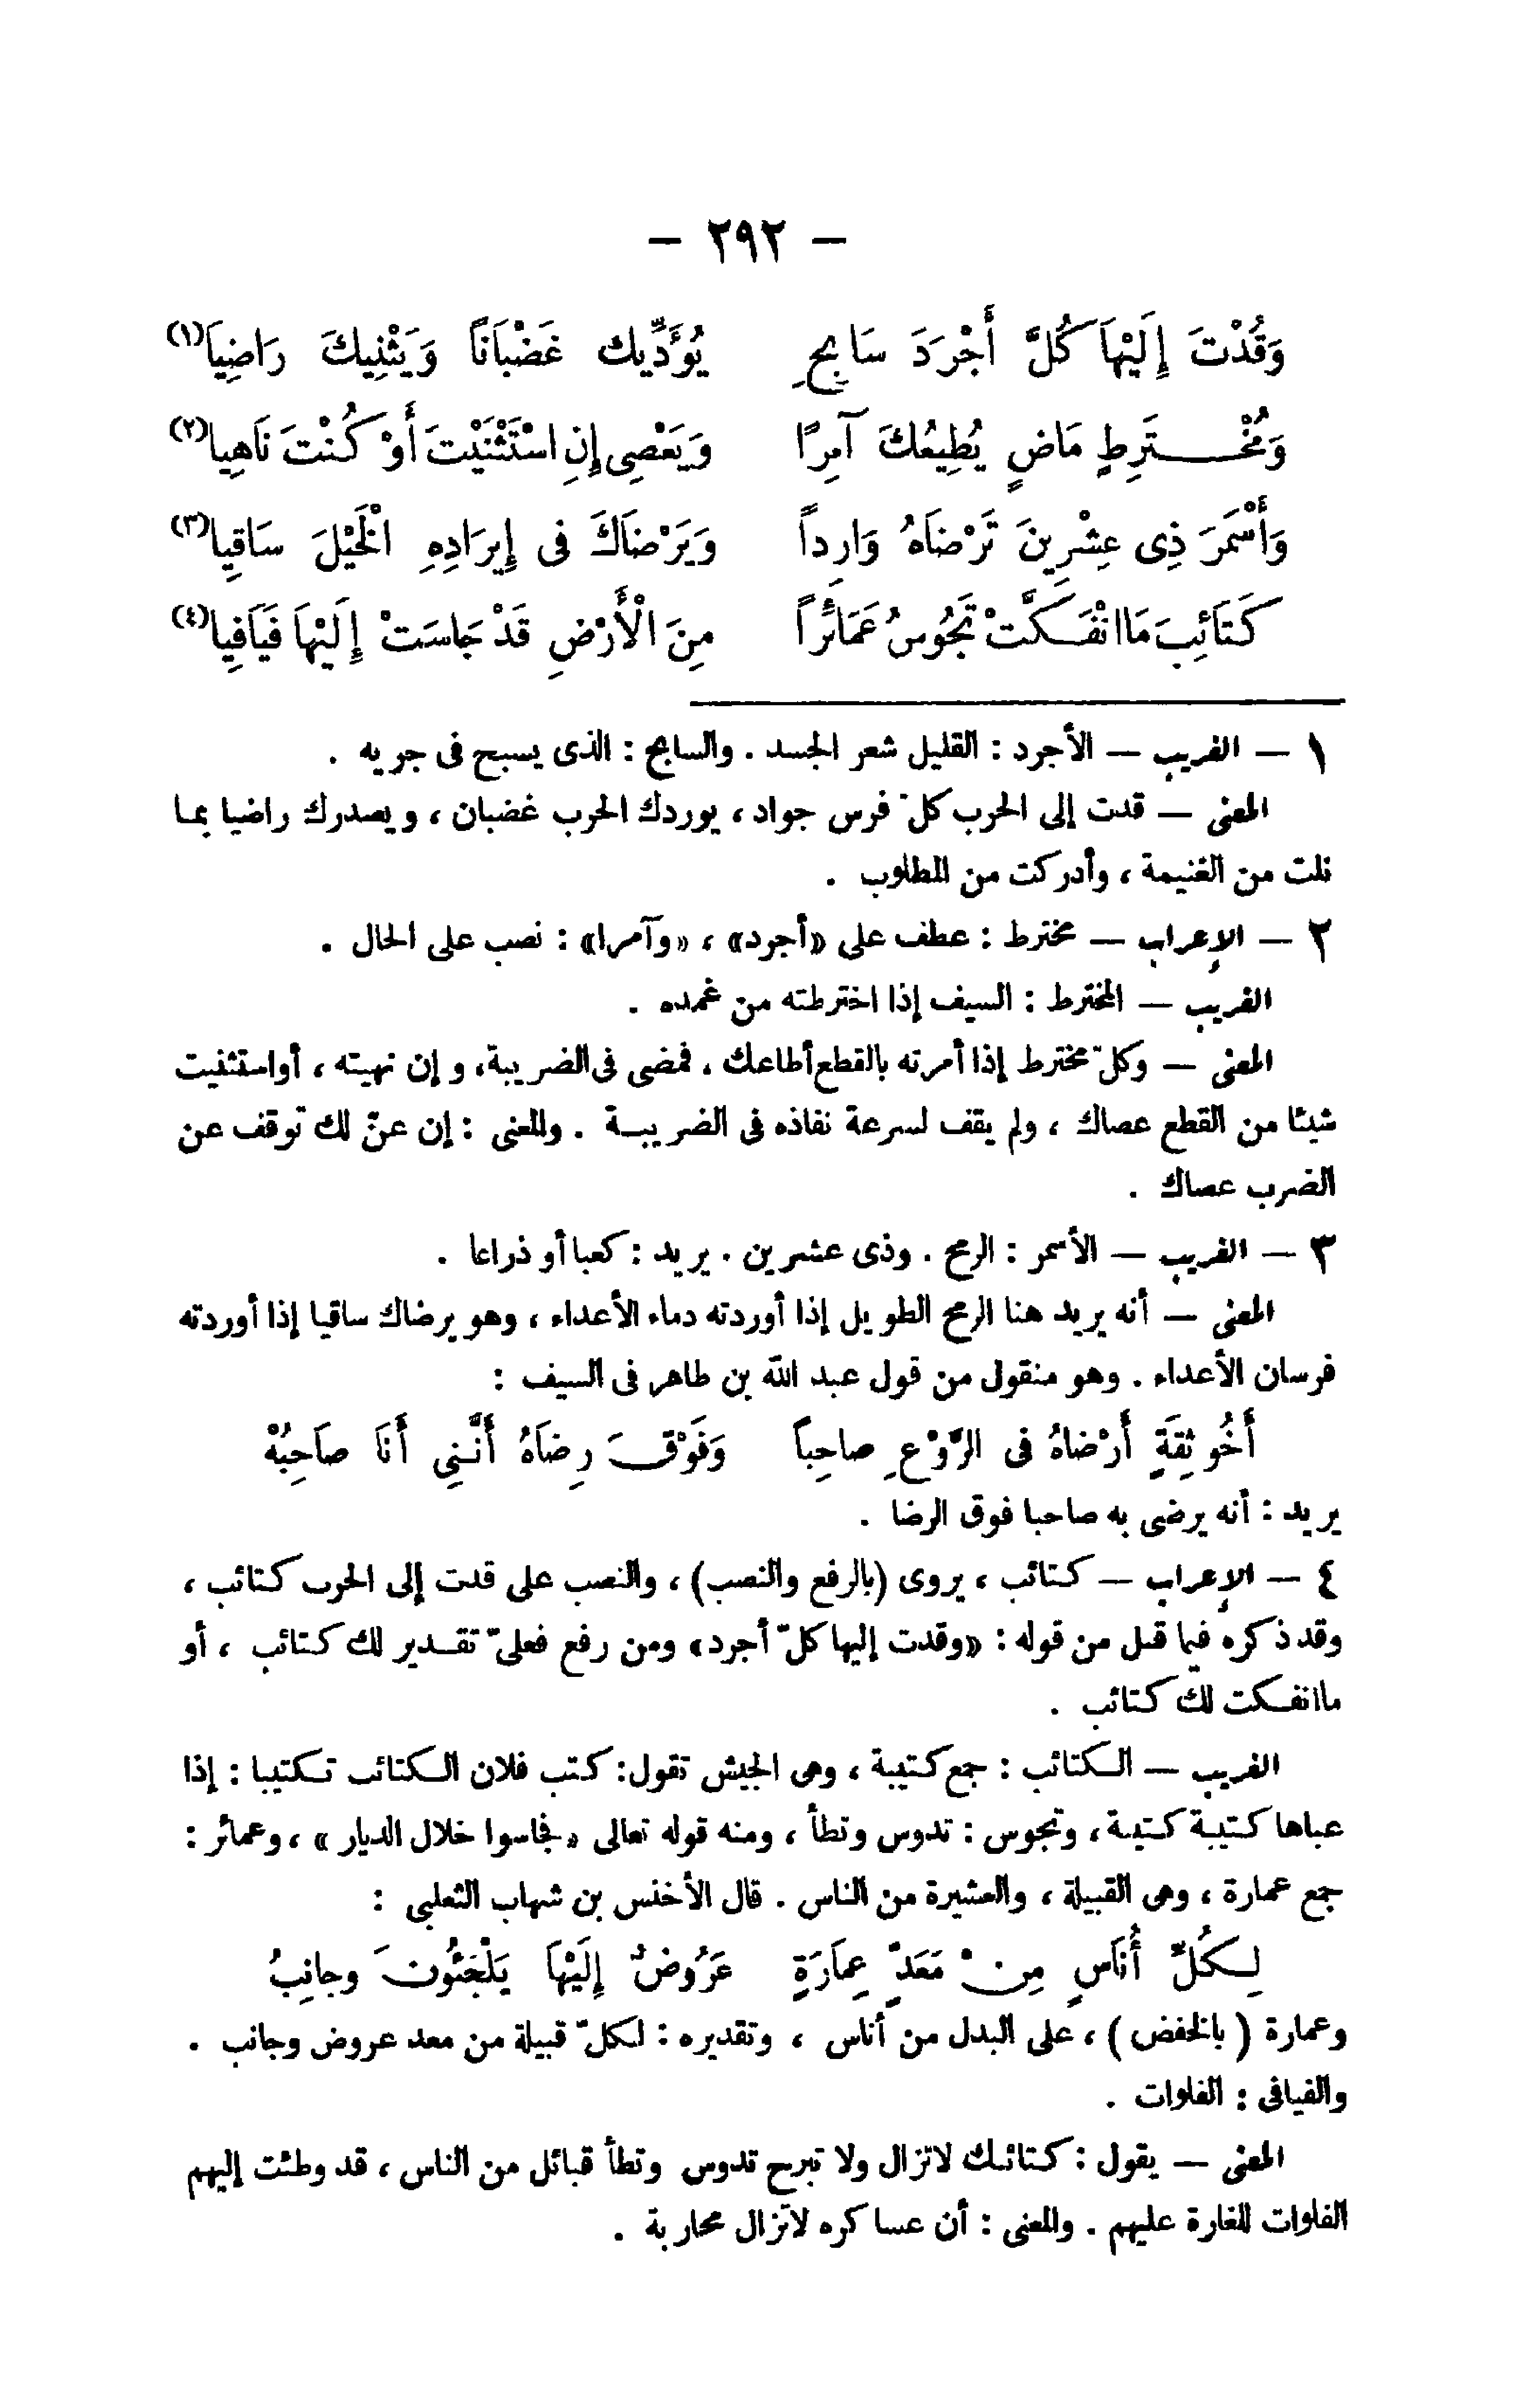 — ٢٩٢ —
وَقُدْتَ إِلَيْهَا كُلَّ أَجْرَدَ سَابِحٍ يُؤَدِّيك غَضْبَاناً وَيَثْنِيكَ رَاضِيا(١)
وَمُخْتَرِطٍ مَاضٍ يُطِيعُكَ آمِرًا وَيَعْصِى إِنِ اسْتَثْنَيْتَ أَوْ كُنْتَ نَاهِيا(٢)
وَأَسْمَرَ ذِى عِشْرِينَ تَرْضَاهُ وَارِداً وَيَرْضَاكَ فى إِيرَادِهِ الْخَيْلَ سَاقِيا(٣)
كَتَائِبَ مَا انْفَكَّتْ تَجُوسُ عَمَائِراً مِنَ الْأَرْضِ قَدْ جَاسَتْ إِلَيْهَا فَيَافِيا(٤)
١ — الغريب — الأجرد : القليل شعر الجسد . والسابح : الذى يسبح فى جريه .
المعنى — قدت إلى الحرب كلّ فرس جواد ، يوردك الحرب غضبان ، ويصدرك راضيا بما
نلت من الغنيمة ، وأدركت من المطلوب .
٢ — الإعراب — مخترط : عطف على «أجرد» ، «وآمرا» : نصب على الحال .
الغريب — المخترط : السيف إذا اخترطته من غمده .
المعنى — وكلّ مخترط إذا أمرته بالقطع أطاعك . فمضى فى الضريبة، وإن نهيته ، أواستثنيت
شيئا من القطع عصاك ، ولم يقف لسرعة نفاذه فى الضريبة . والمعنى : إن عنّ لك توقف عن
الضرب عصاك .
٣ — الغريب — الأسمر : الرمح . وذى عشرين . يريد : كعبا أو ذراعا .
المعنى — أنه يريد هنا الرمح الطويل إذا أوردته دماء الأعداء ، وهو يرضاك ساقيا إذا أوردته
فرسان الأعداء . وهو منقول من قول عبد الله بن طاهر فى السيف :
أَخُو ثِقَةٍ أَرْضَاهُ فى الرَّوْعِ صاحِباً وَفَوْقَ رِضَاهُ أَنَّنِى أَنَا صَاحِبُهْ
يريد : أنه يرضى به صاحبا فوق الرضا .
٤ — الإعراب — كتائب ، يروى (بالرفع والنصب) ، والنصب على قدت إلى الحرب كتائب ،
وقد ذكره فيما قبل من قوله : «وقدت إليها كلّ أجرد» ومن رفع فعلى تقدير لك كتائب ، أو
ما انفكت لك كتائب .
الغريب — الكتائب : جمع كتيبة ، وهى الجيش تقول: كتب فلان الكتائب تكتيبا : إذا
عباها كتيبة كتيبة ، وتجوس : تدوس وتطأ ، ومنه قوله تعالى «فجاسوا خلال الديار » ، وعمائر :
جمع عمارة ، وهى القبيلة ، والعشيرة من الناس . قال الأخنس بن شهاب الثعلبى :
لِكُلِّ أُنَاسٍ مِنْ مَعَدٍّ عِمَارَةٍ عَرُوضٌ إِلَيْهَا يَلْجَئُونَ وجانِبُ
وعمارة ( بالخفض ) ، على البدل من أناس ، وتقديره : لكلّ قبيلة من معد عروض وجانب .
والفيافى : الفلوات .
المعنى — يقول : كتائبك لاتزال ولا تبرح تدوس وتطأ قبائل من الناس ، قد وطئت إليهم
الفلوات للغارة عليهم . والمعنى : أن عساكره لاتزال محاربة .